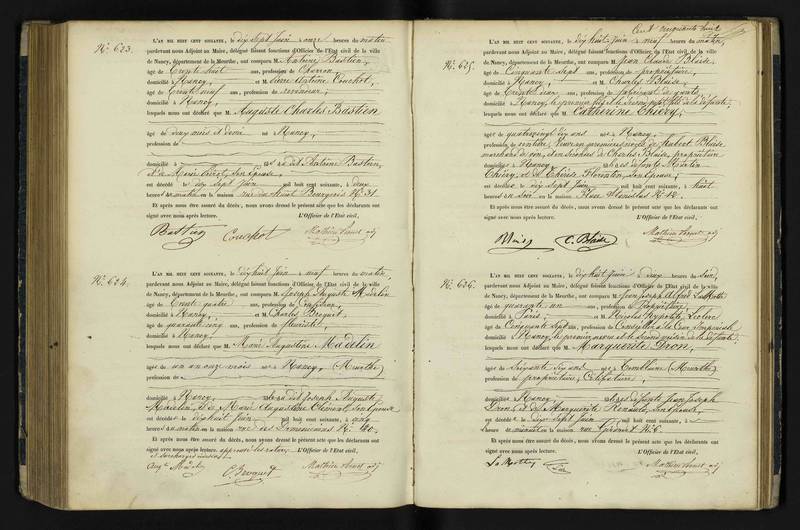 N.º 623.
L'AN MIL HUIT CENT SOIXANTE, le dix sept Juin à onze heures du matin
pardevant nous Adjoint au Maire, délégué faisant fonctions d'Officier de l'État civil de la ville
de Nancy, département de la Meurthe, ont comparu M. Antoine Bastien,
âgé de trente huit ans, profession de
domicilié à Nancy, et M. Pierre Antoine Couchot,
âgé de trente neuf ans, profession de
domicilié à Nancy,
lesquels nous ont déclaré que M. Auguste Charles Bastien
âgé de deux mois et demi né à Nancy,
profession de
domicilié à fils dudit Antoine Bastien,
et de Marie son épouse,
est décédé le dix sept Juin mil huit cent soixante, à deux
heures du matin en la maison N.º 31.
Et après nous être assuré du décès, nous avons dressé le présent acte que les déclarants ont
signé avec nous après lecture. L'Officier de l'État civil,
Bastien Couchot
N.º 624.
L'AN MIL HUIT CENT SOIXANTE, le dix huit Juin à neuf heures du matin,
pardevant nous Adjoint au Maire, délégué faisant fonctions d'Officier de l'État civil de la ville
de Nancy, département de la Meurthe, ont comparu M. Joseph Auguste Madelin
âgé de trente quatre ans, profession de
domicilié à Nancy, et M. Charles Brequet
âgé de quarante cinq ans, profession de fleuriste,
domicilié à Nancy,
lesquels nous ont déclaré que M. Marie Augustine Madelin
âgée de un an onze mois née à Nancy, (Meurthe)
profession de
domiciliée à Nancy, fille dudit Joseph Auguste
Madelin, et de Marie Augustine Clément, son épouse
est décédée le dix huit Juin mil huit cent soixante, à cinq
heures du matin en la maison rue des Dominicains N.º 40.
Et après nous être assuré du décès, nous avons dressé le présent acte que les déclarants ont
signé avec nous après lecture. L'Officier de l'État civil,
Cent cinquante huit
N.º 625.
L'AN MIL HUIT CENT SOIXANTE, le dix huit Juin à neuf heures du matin,
pardevant nous Adjoint au Maire, délégué faisant fonctions d'Officier de l'État civil de la ville
de Nancy, département de la Meurthe, ont comparu M. Jean Claude Blaise
âgé de cinquante sept ans, profession de propriétaire,
domicilié à Nancy, et M. Charles Blaise,
âgé de ans, profession de fabricant de gants,
domicilié à Nancy, le premier fils et le second petit fils de la défunte,
lesquels nous ont déclaré que M. Catherine Thiéry,
âgée de quatrevingt dix ans née à Nancy,
profession de rentière, veuve en premières noces de Hubert Blaise
marchand de son, et en secondes de Charles Blaise, propriétaire
domiciliée à Nancy, fille des défunts Martin
Thiéry, et de Thérèse Florentin, son épouse,
est décédée le dix sept Juin mil huit cent soixante, à huit
heures du soir en la maison Place Stanislas N.º
Et après nous être assuré du décès, nous avons dressé le présent acte que les déclarants ont
signé avec nous après lecture. L'Officier de l'État civil,
Blaise C. Blaise
N.º 626.
L'AN MIL HUIT CENT SOIXANTE, le dix huit Juin à deux heures du soir,
pardevant nous Adjoint au Maire, délégué faisant fonctions d'Officier de l'État civil de la ville
de Nancy, département de la Meurthe, ont comparu M. Jean Joseph Alfred
âgé de quarante un ans, profession de Propriétaire,
domicilié à Paris, et M. Nicolas Hypolite Leclerc
âgé de cinquante sept ans, profession de Conseiller à la Cour Impériale
domicilié à Nancy, le premier neveu et le second voisin de la défunte,
lesquels nous ont déclaré que M. Marguerite Dron,
âgée de soixante dix ans née à (Meurthe)
profession de propriétaire, Célibataire,
domiciliée à Nancy, fille des défunts Jean Joseph
Dron, et de Marguerite son épouse,
est décédée le dix huit Juin mil huit cent soixante, à
heures du matin en la maison rue N.º 6.
Et après nous être assuré du décès, nous avons dressé le présent acte que les déclarants ont
signé avec nous après lecture. L'Officier de l'État civil,